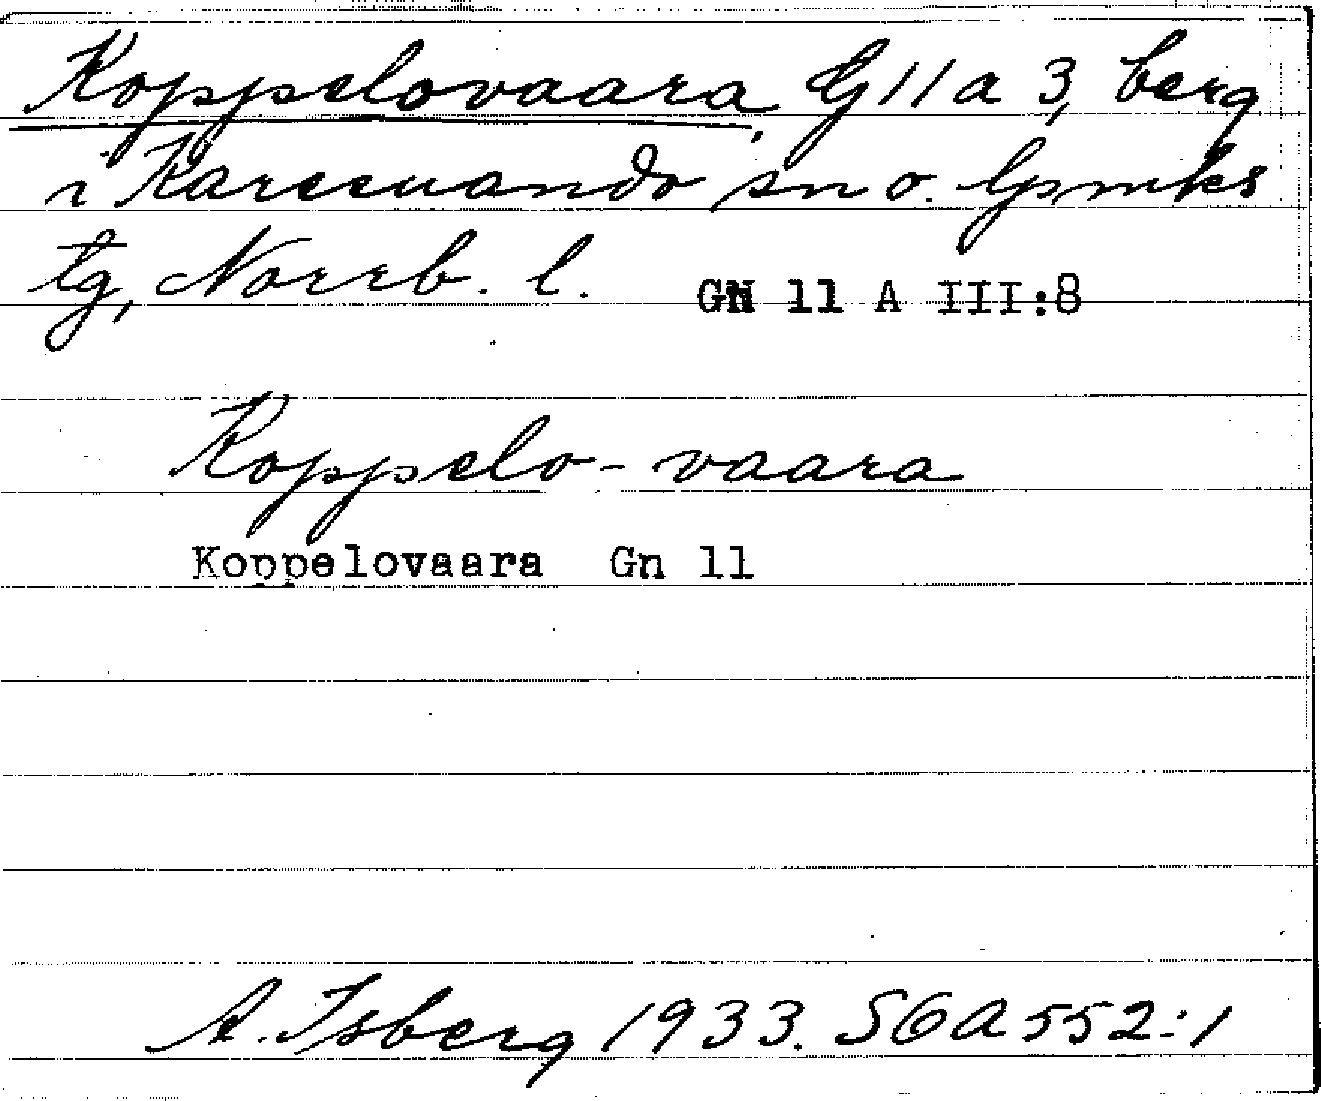 Koppelovaara, G 11 a 3, berg
i Karesuando sn o. lpmks
tg, Norrb. l. GN 11 A III:8
Koppelo-vaara
Koppelovaara Gn 11
A. Isberg 1933. SGA 552:1